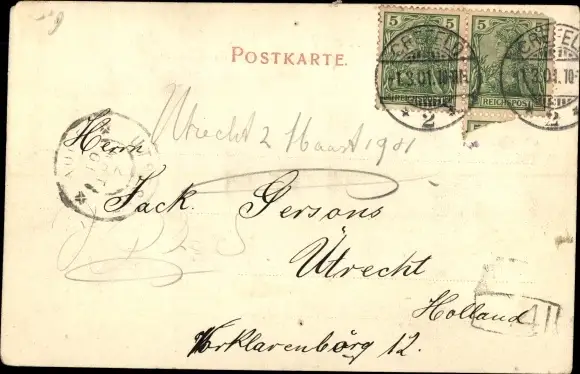 POSTKARTE.
5 5
REICHPOST
5 5
REICHPOST
CREFELD
1.3.01.10-11
2
CREFELD
1.3.01.10-
2
Utrecht 2 Maart 1901
Herrn
Jack. Gersons
Utrecht
Holland
12.